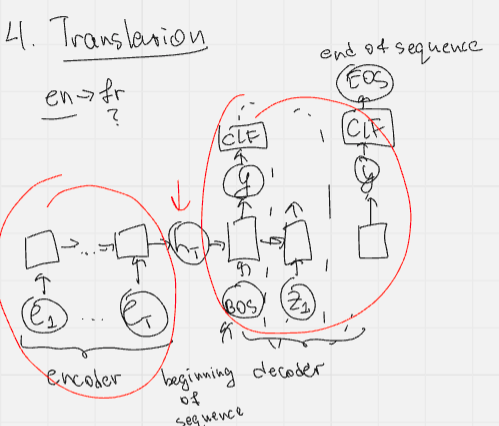 4. Translation
end of sequence
en => fr
?
EOS
CLF
CLF
y
y
h_T
e_1
...
e_T
BOS
z_1
encoder
beginning
of
sequence
decoder